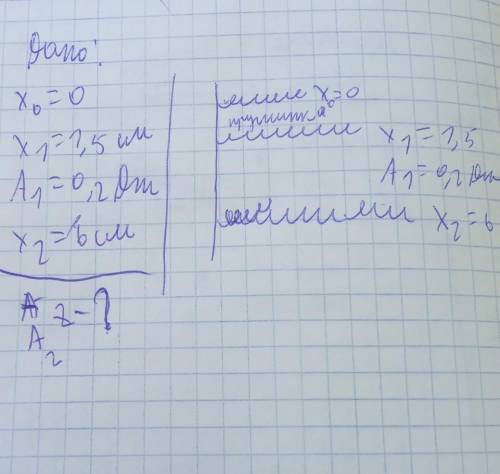 Дано:
x₀=0
x₁=1,5 см
A₁=0,2 Дж
x₂=6 см
A₂-?
x=0
пружинка
x₁=1,5
A₁=0,2 Дж
x₂=6